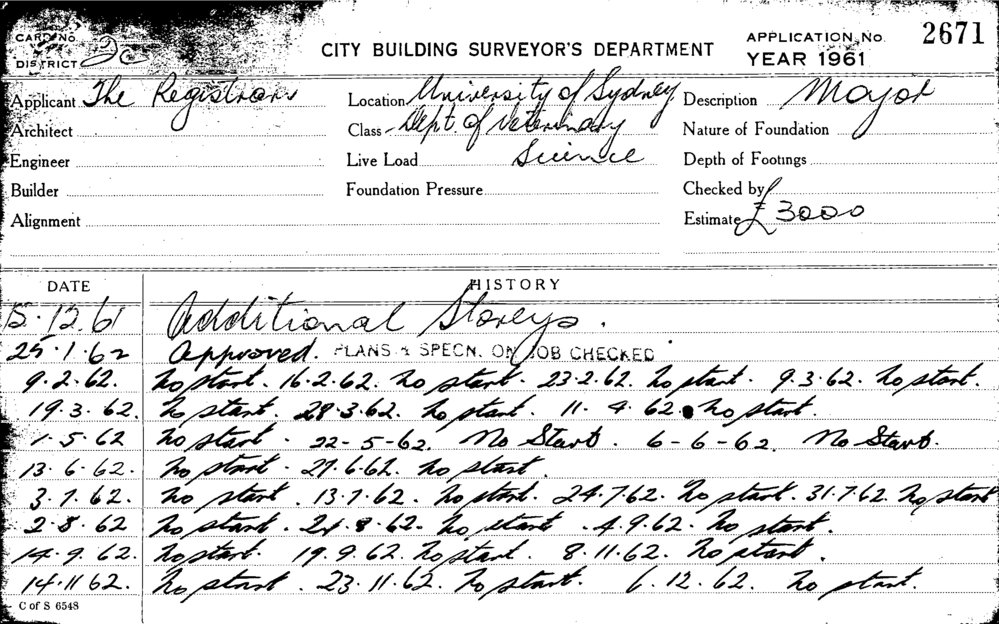 CARD No.
DISTRICT
CITY BUILDING SURVEYOR'S DEPARTMENT
APPLICATION No. 2671
YEAR 1961
Applicant The Registrar Location University of Sydney Description Major
Architect Class - Dept. of Veterinary Nature of Foundation
Engineer Live Load Science Depth of Footings
Builder Foundation Pressure Checked by
Alignment Estimate £3000
DATE HISTORY
5.12.61 Additional Storeys.
25.1.62 Approved. PLANS & SPECN. ON JOB CHECKED
9.2.62. No start. 16.2.62. No start. 23.2.62. No start. 9.3.62. No start.
19.3.62. No start. 28.3.62. No start. 11.4.62. No start.
1.5.62 No start. 22-5-62. No Start. 6-6-62. No Start.
13.6.62. No start. 27.6.62. No start.
3.7.62. No start. 13.7.62. No start. 24.7.62. No start. 31.7.62. No start
2.8.62 No start. 24.8.62. No start. 4.9.62. No start.
14.9.62. No start. 19.9.62. No start. 8.11.62. No start.
14.11.62. No start. 23.11.62. No start. 6.12.62. No start.
C of S 6548